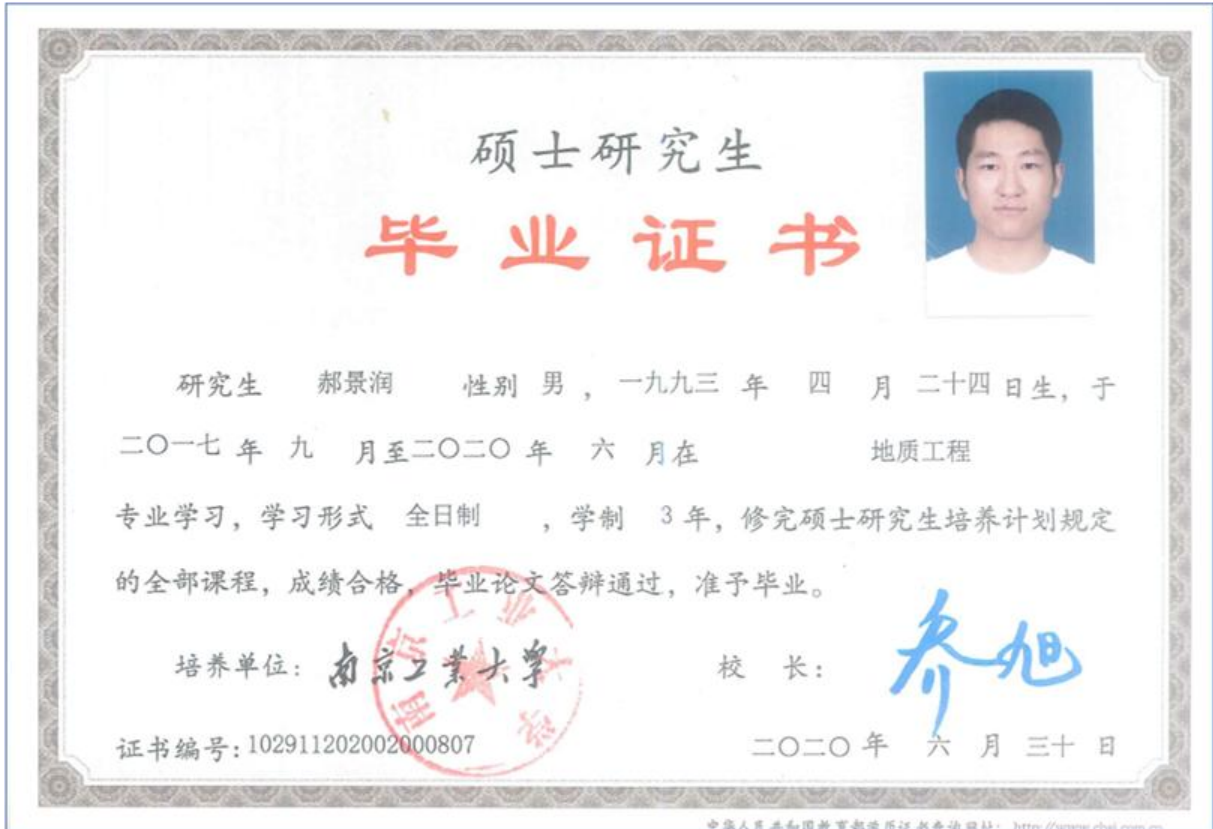 硕士研究生
毕业证书
研究生 郝景润 性别 男 ，一九九三 年 四 月 二十四 日生，于
二〇一七 年 九 月至二〇二〇 年 六 月在 地质工程
专业学习，学习形式 全日制 ，学制 3 年，修完硕士研究生培养计划规定
的全部课程，成绩合格，毕业论文答辩通过，准予毕业。
南京工业大学
培养单位：南京工业大学 校 长：乔旭
证书编号：102911202002000807 二〇二〇 年 六 月 三十 日
中华人民共和国教育部学历证书查询网址：http://www.chsi.com.cn